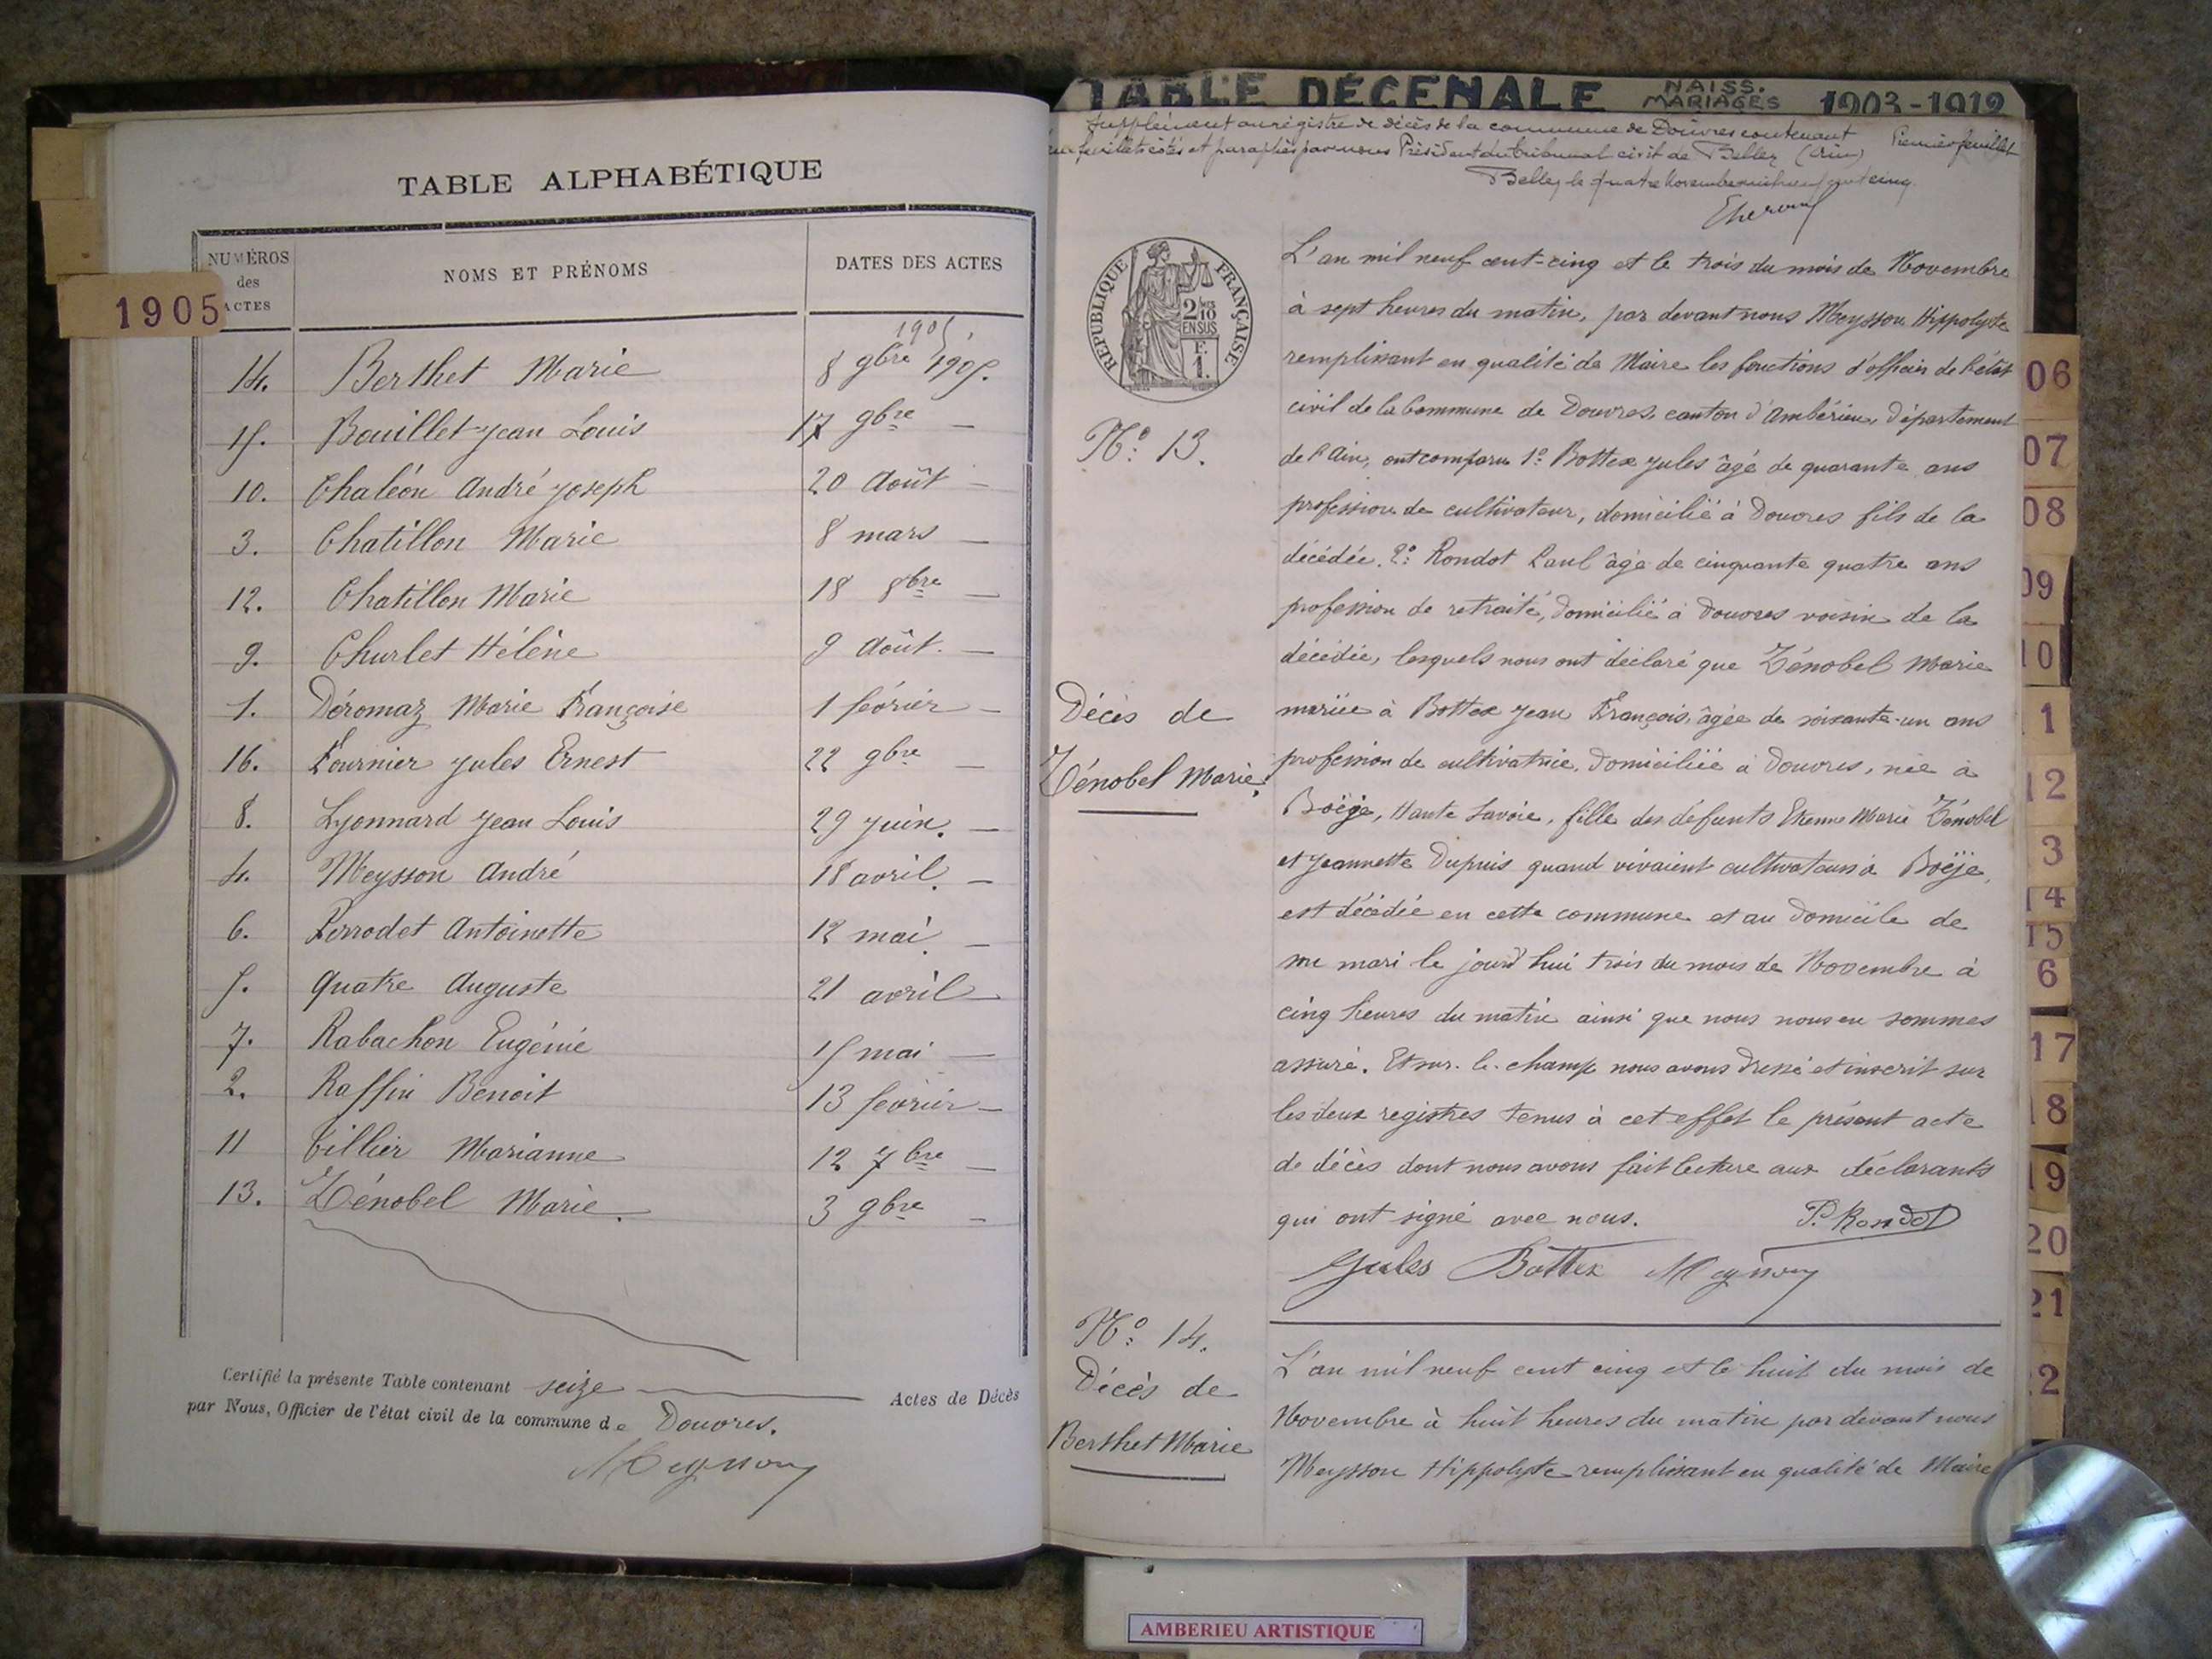 TABLE ALPHABÉTIQUE
NUMÉROS des ACTES
NOMS ET PRÉNOMS
DATES DES ACTES
1905
1905.
14. Berthet Marie 8 9bre 1905.
15. Bouillet Jean Louis 17 9bre —
10. Chaléon André Joseph 20 Août —
3. Chatillon Marie 8 mars —
12. Chatillon Marie 18 8bre —
9. Churlet Hélène 9 Août. —
1. Déromaz Marie Françoise 1 février —
16. Fournier Jules Ernest 22 9bre —
8. Lyonnard Jean Louis 29 Juin. —
4. Meysson André 18 avril. —
6. Perrodet Antoinette 12 mai. —
5. Quatre Auguste 21 avril —
7. Rabachon Eugénie 15 mai —
2. Raffin Benoit 13 février —
11 Tillier Marianne 12 7bre —
13. Zénobel Marie. 3 9bre —
Certifié la présente Table contenant seize Actes de Décès
par Nous, Officier de l'état civil de la commune de Douvres.
Meysson
TABLE DÉCENALE NAISS. MARIAGES 1903-1912
Supplément au registre de décès de la commune de Douvres contenant
feuillets cotés et paraphés par nous Président du tribunal civil de Belley (Ain)
Premier feuillet
Belley le quatre Novembre mil neuf cent cinq.
RÉPUBLIQUE FRANÇAISE
2/10 EN SUS
F. 1.
N° 13.
Décès de
Zénobel Marie.
L'an mil neuf cent-cinq et le trois du mois de Novembre
à sept heures du matin, par devant nous Meysson Hippolyte
remplissant en qualité de Maire les fonctions d'officier de l'état
civil de la Commune de Douvres, canton d'Ambérieu, Département
de l'Ain, ont comparu 1° Bottex Jules âgé de quarante ans
profession de cultivateur, domicilié à Douvres fils de la
décédée. 2° Rondot Paul âgé de cinquante quatre ans
profession de retraité, domicilié à Douvres voisin de la
décédée, lesquels nous ont déclaré que Zénobel Marie
mariée à Bottex Jean François, âgée de soixante-un ans
profession de cultivatrice, domiciliée à Douvres, née à
Boëge, Haute Savoie, fille des défunts Etienne Marie Zénobel
et Jeannette Dupuis quand vivaient cultivateurs à Boëje,
est décédée en cette commune et au domicile de
son mari le jourd'hui trois du mois de Novembre à
cinq heures du matin ainsi que nous nous en sommes
assuré. Et sur-le-champ nous avons dressé et inscrit sur
les deux registres tenus à cet effet le présent acte
de décès dont nous avons fait lecture aux déclarants
qui ont signé avec nous.
P. Rondot
Jules Bottex Meysson
N° 14.
Décès de
Berthet Marie
L'an mil neuf cent cinq et le huit du mois de
Novembre à huit heures du matin par devant nous
Meysson Hippolyte remplissant en qualité de Maire
06
07
08
09
10
1
12
3
14
15
6
17
18
19
20
21
2
AMBERIEU ARTISTIQUE